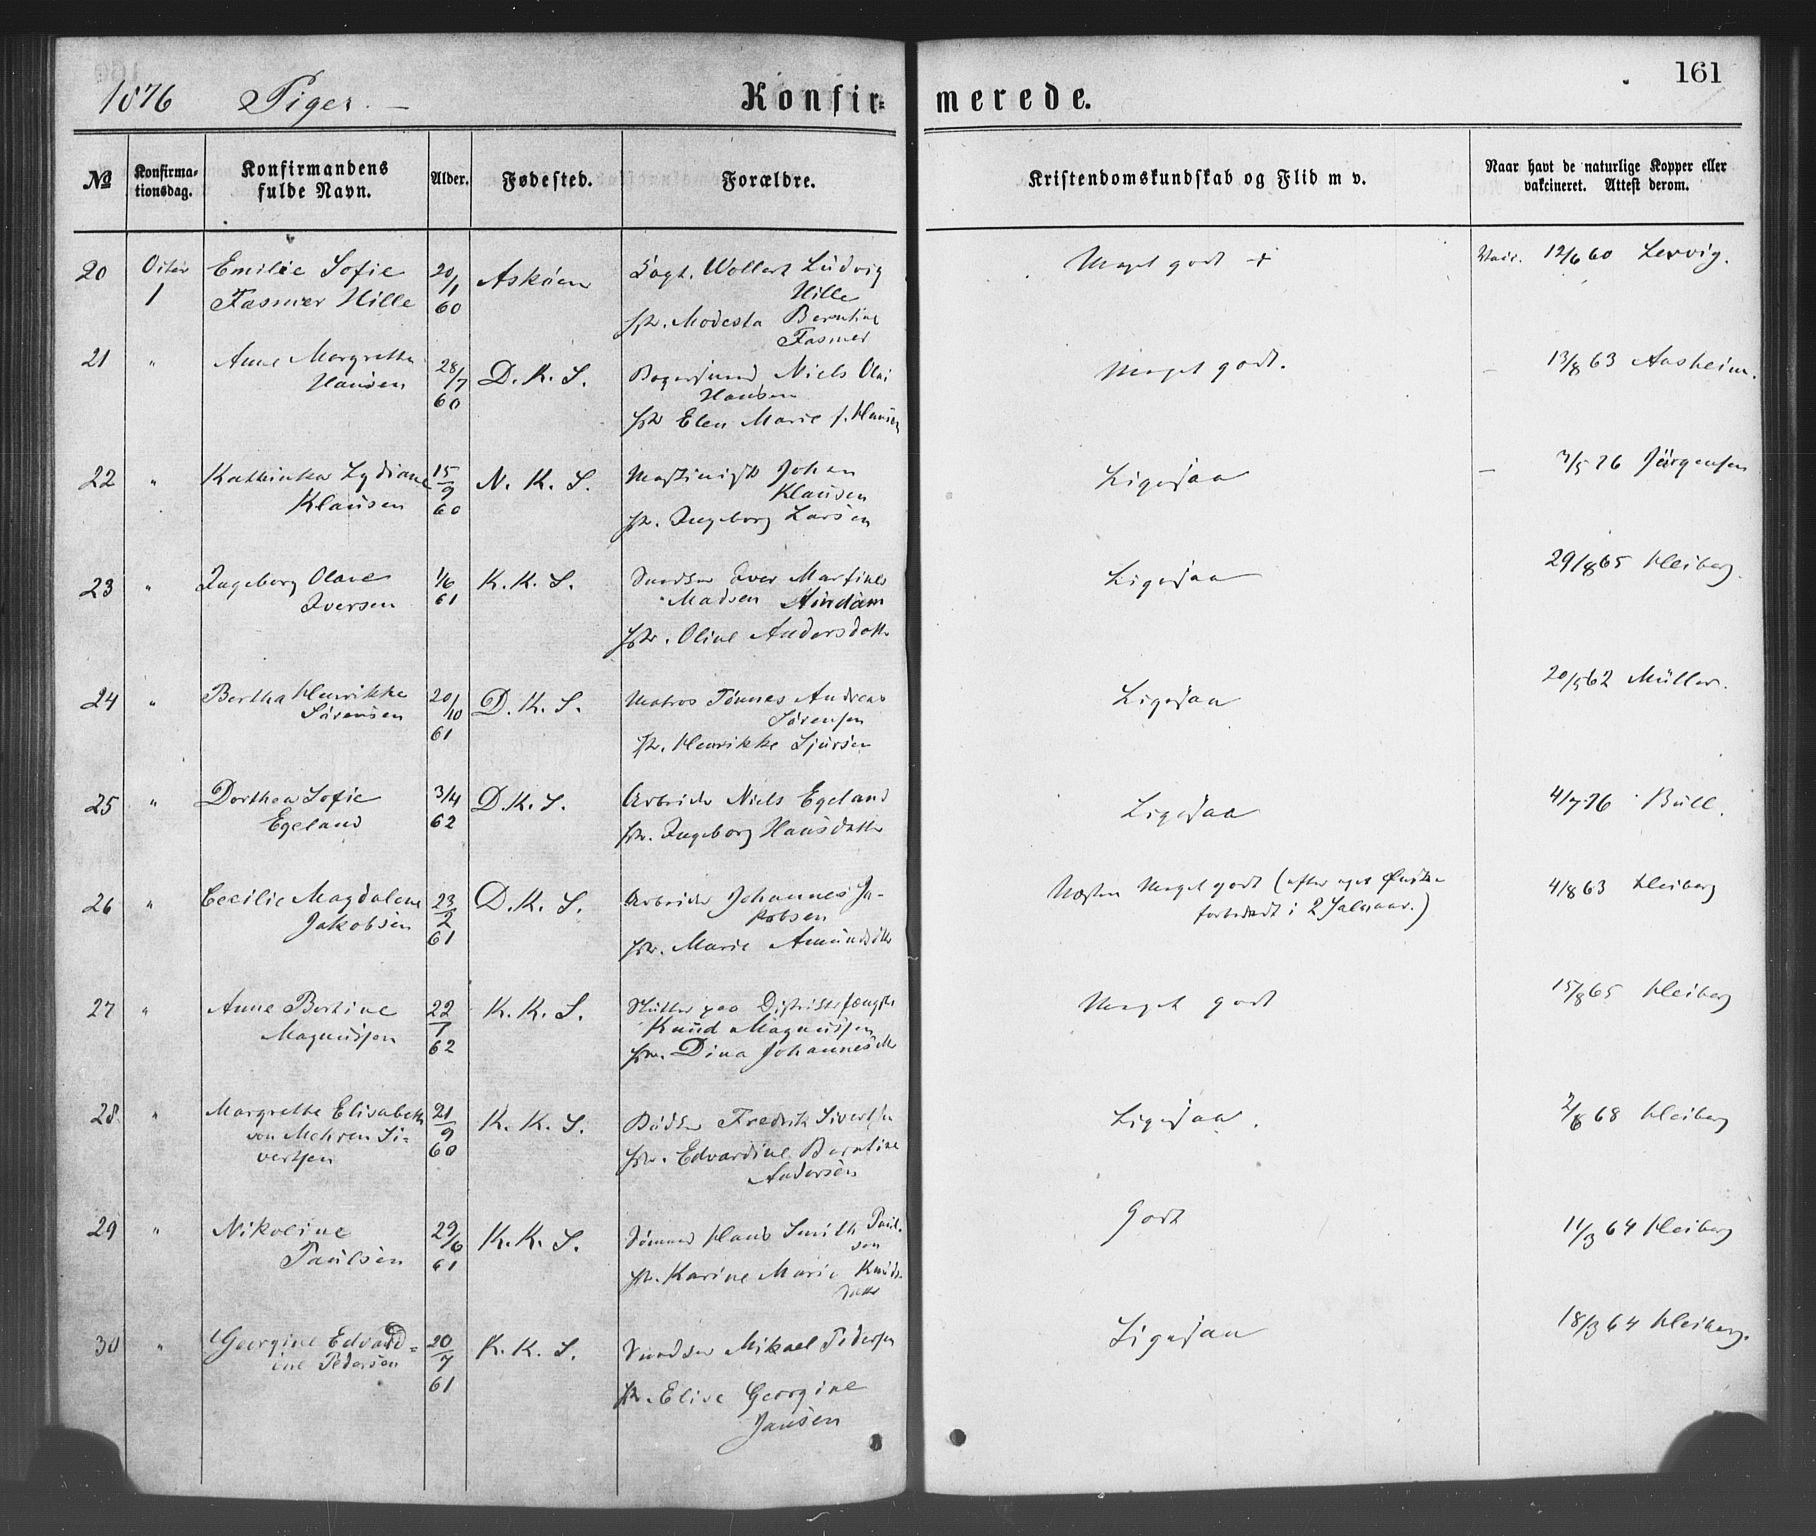 161
1876 Piger. —
Konfir= merede.
№
Konfirma-
tionsdag.
Konfirmandens
fulde Navn.
Alder.
Fødested.
Forældre.
Kristendomskundskab og Flid m v.
Naar havt de naturlige Kopper eller
vakcineret. Attest derom.
20 Oktbr Emilie Sofie 20/1 Askøen Wollert Ludvig Meget godt + 12/6 60 Lexvig.
1 Fasmer Hille 60 Hille
Modesta Berntine
Fasmer
21 " Anne Margrethe 28/7 D. K. S. Niels Olai Meget godt. — 13/8 63 Aasheim.
Hansen 60 Hansen
Elen Marie f. Hansen
22 " Kathinka Lydiane 15/9 N. K. S. Johan Ligesaa — 3/5 76 Jürgensen
Klausen 60 Klausen
Ingeborg Larsen
23 " Ingeborg Olave 1/6 K. K. S. Iver Martines Ligesaa 29/8 65 Heiberg.
Iversen 61 Madsen
Oline Andersdatter
24 " Bertha Henrikke 20/10 D. K. S. Matros Tønnes Andreas Ligesaa 20/5 62 Müller.
Sørensen 61 Sørensen
Henrikke Sjursen
25 " Dorthea Sofie 3/4 D. K. S. Arbeider Niels Egeland Ligesaa 4/7 76 Bull.
Egeland 62 Ingeborg Hansdatter
26 " Cecilie Magdalene 23/2 D. K. S. Arbeider Johannes Ja- Næsten Meget godt (efter eget Ønske 4/8 63 Heiberg
Jakobsen 61 kobsen forberedt i 2 Halvaar.)
Marie Amundsdtr
27 " Anne Bertine 22/1 K. K. S. Slutter paa Distriktsfængslet Meget godt 15/8 65 Heiberg
Magnussen 62 Knud Magnussen
Dina Johannesdtr
28 " Margrethe Elisabeth 21/9 K. K. S. Bødker Fredrik Sivertsen Ligesaa. 2/6 68 Heiberg
von Mehren Si- 60 Edvardine Berntine
vertsen Andersen
29 " Nikoline 29/6 K. K. S. Sømand Hans Smith Paul- Godt 11/3 64 Heiberg
Paulsen 61 sen
Karine Marie Knuds-
datter
30 " Georgine Edvard= 20/7 K. K. S. Mikael Pedersen Ligesaa 18/3 64 Heiberg.
ine Pedersen 61 Elise Georgine
Jansen